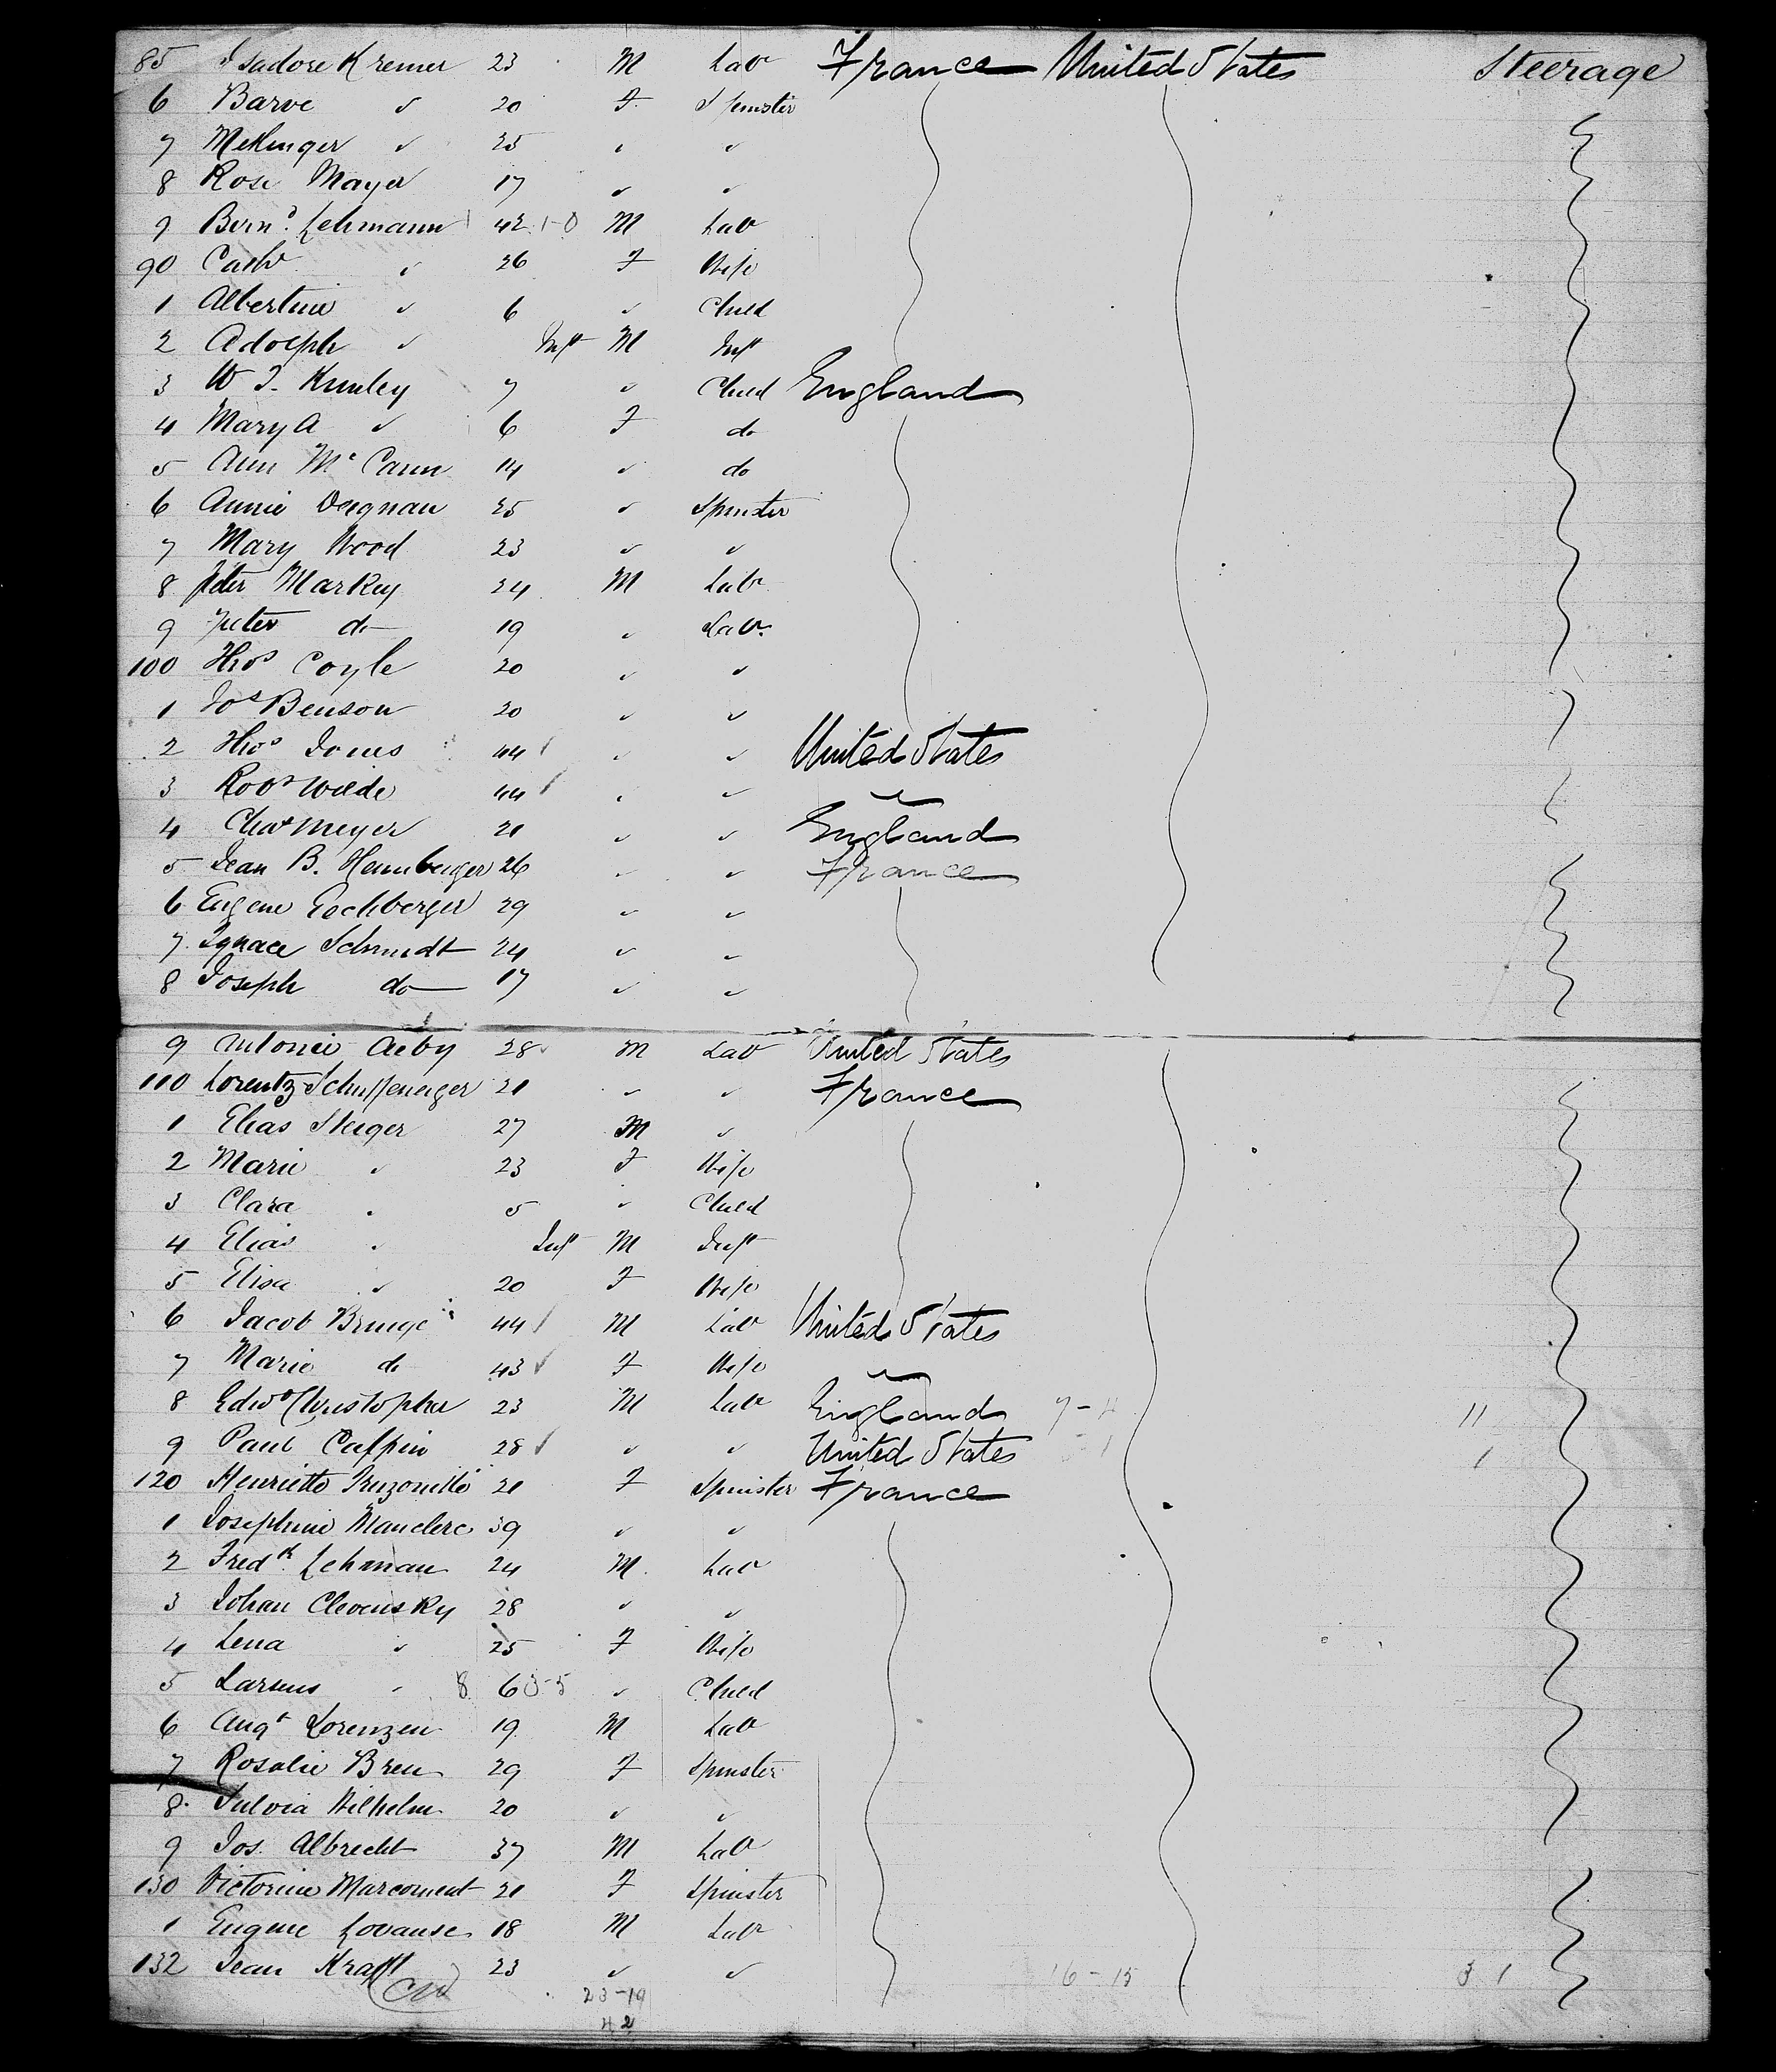 85 Isadore Kremer 23 M Lab France United States Steerage
6 Barve " 20 F Spinster
7 " 25 " "
8 Rose Mayer 17 " "
9 Bern.d Lehmann 42 M Lab
90 Cath " 26 F Wife
1 Albertine " 6 " Child
2 Adolph " Inft M Inft
3 W T. Kunley 7 " Child England
4 Mary A " 6 F do
5 Ann Mc Cann 14 " do
6 Annie Degnan 25 " Spinster
7 Mary Wood 23 " "
8 Peter Markey 24 M Lab
9 Peter do 19 " Lab.
100 Thos Coyle 20 " "
1 Jos Benson 20 " "
2 Thos Jones 44 " " United States
3 Robt Wilde 44 " " "
4 Chas Meyer 21 " " England
5 Jean B. Hennberger 26 " " France
6 Eugene Eschberger 29 " "
7 Ignace Schmidt 24 " "
8 Joseph do 17 " "
9 Antonie Aeby 28 M Lab United States
110 Lorentz 21 " " France
1 Elias Steiger 27 M "
2 Marie " 23 F Wife
3 Clara " 5 " Child
4 Elias " Inft M Inft
5 Elisa " 20 F Wife
6 Jacob Bringe 44 M Lab United States
7 Marie do 43 F Wife "
8 Edwd Christopher 23 M Lab England 7-4 11
9 Paul Calpin 28 " " United States 1
120 Henriette 21 F Spinster France
1 Josephine Manclerc 39 " "
2 Fredk. Lehman 24 M. Lab
3 Johan Clevensky 28 " "
4 Lena " 25 F Wife
5 Larsens " 8 6 " Child
6 Augt Lorenzen 19 M Lab
7 Rosalie Breu 29 F Spinster
8. Silvia Wilhelm 20 " "
9 Jos. Albrecht 37 M Lab
130 Victorine Marconent 21 F Spinster
1 Eugene Lovanse 18 M Lab
132 Jean Kraft 23 " " 16-15 3 1
23-19
42